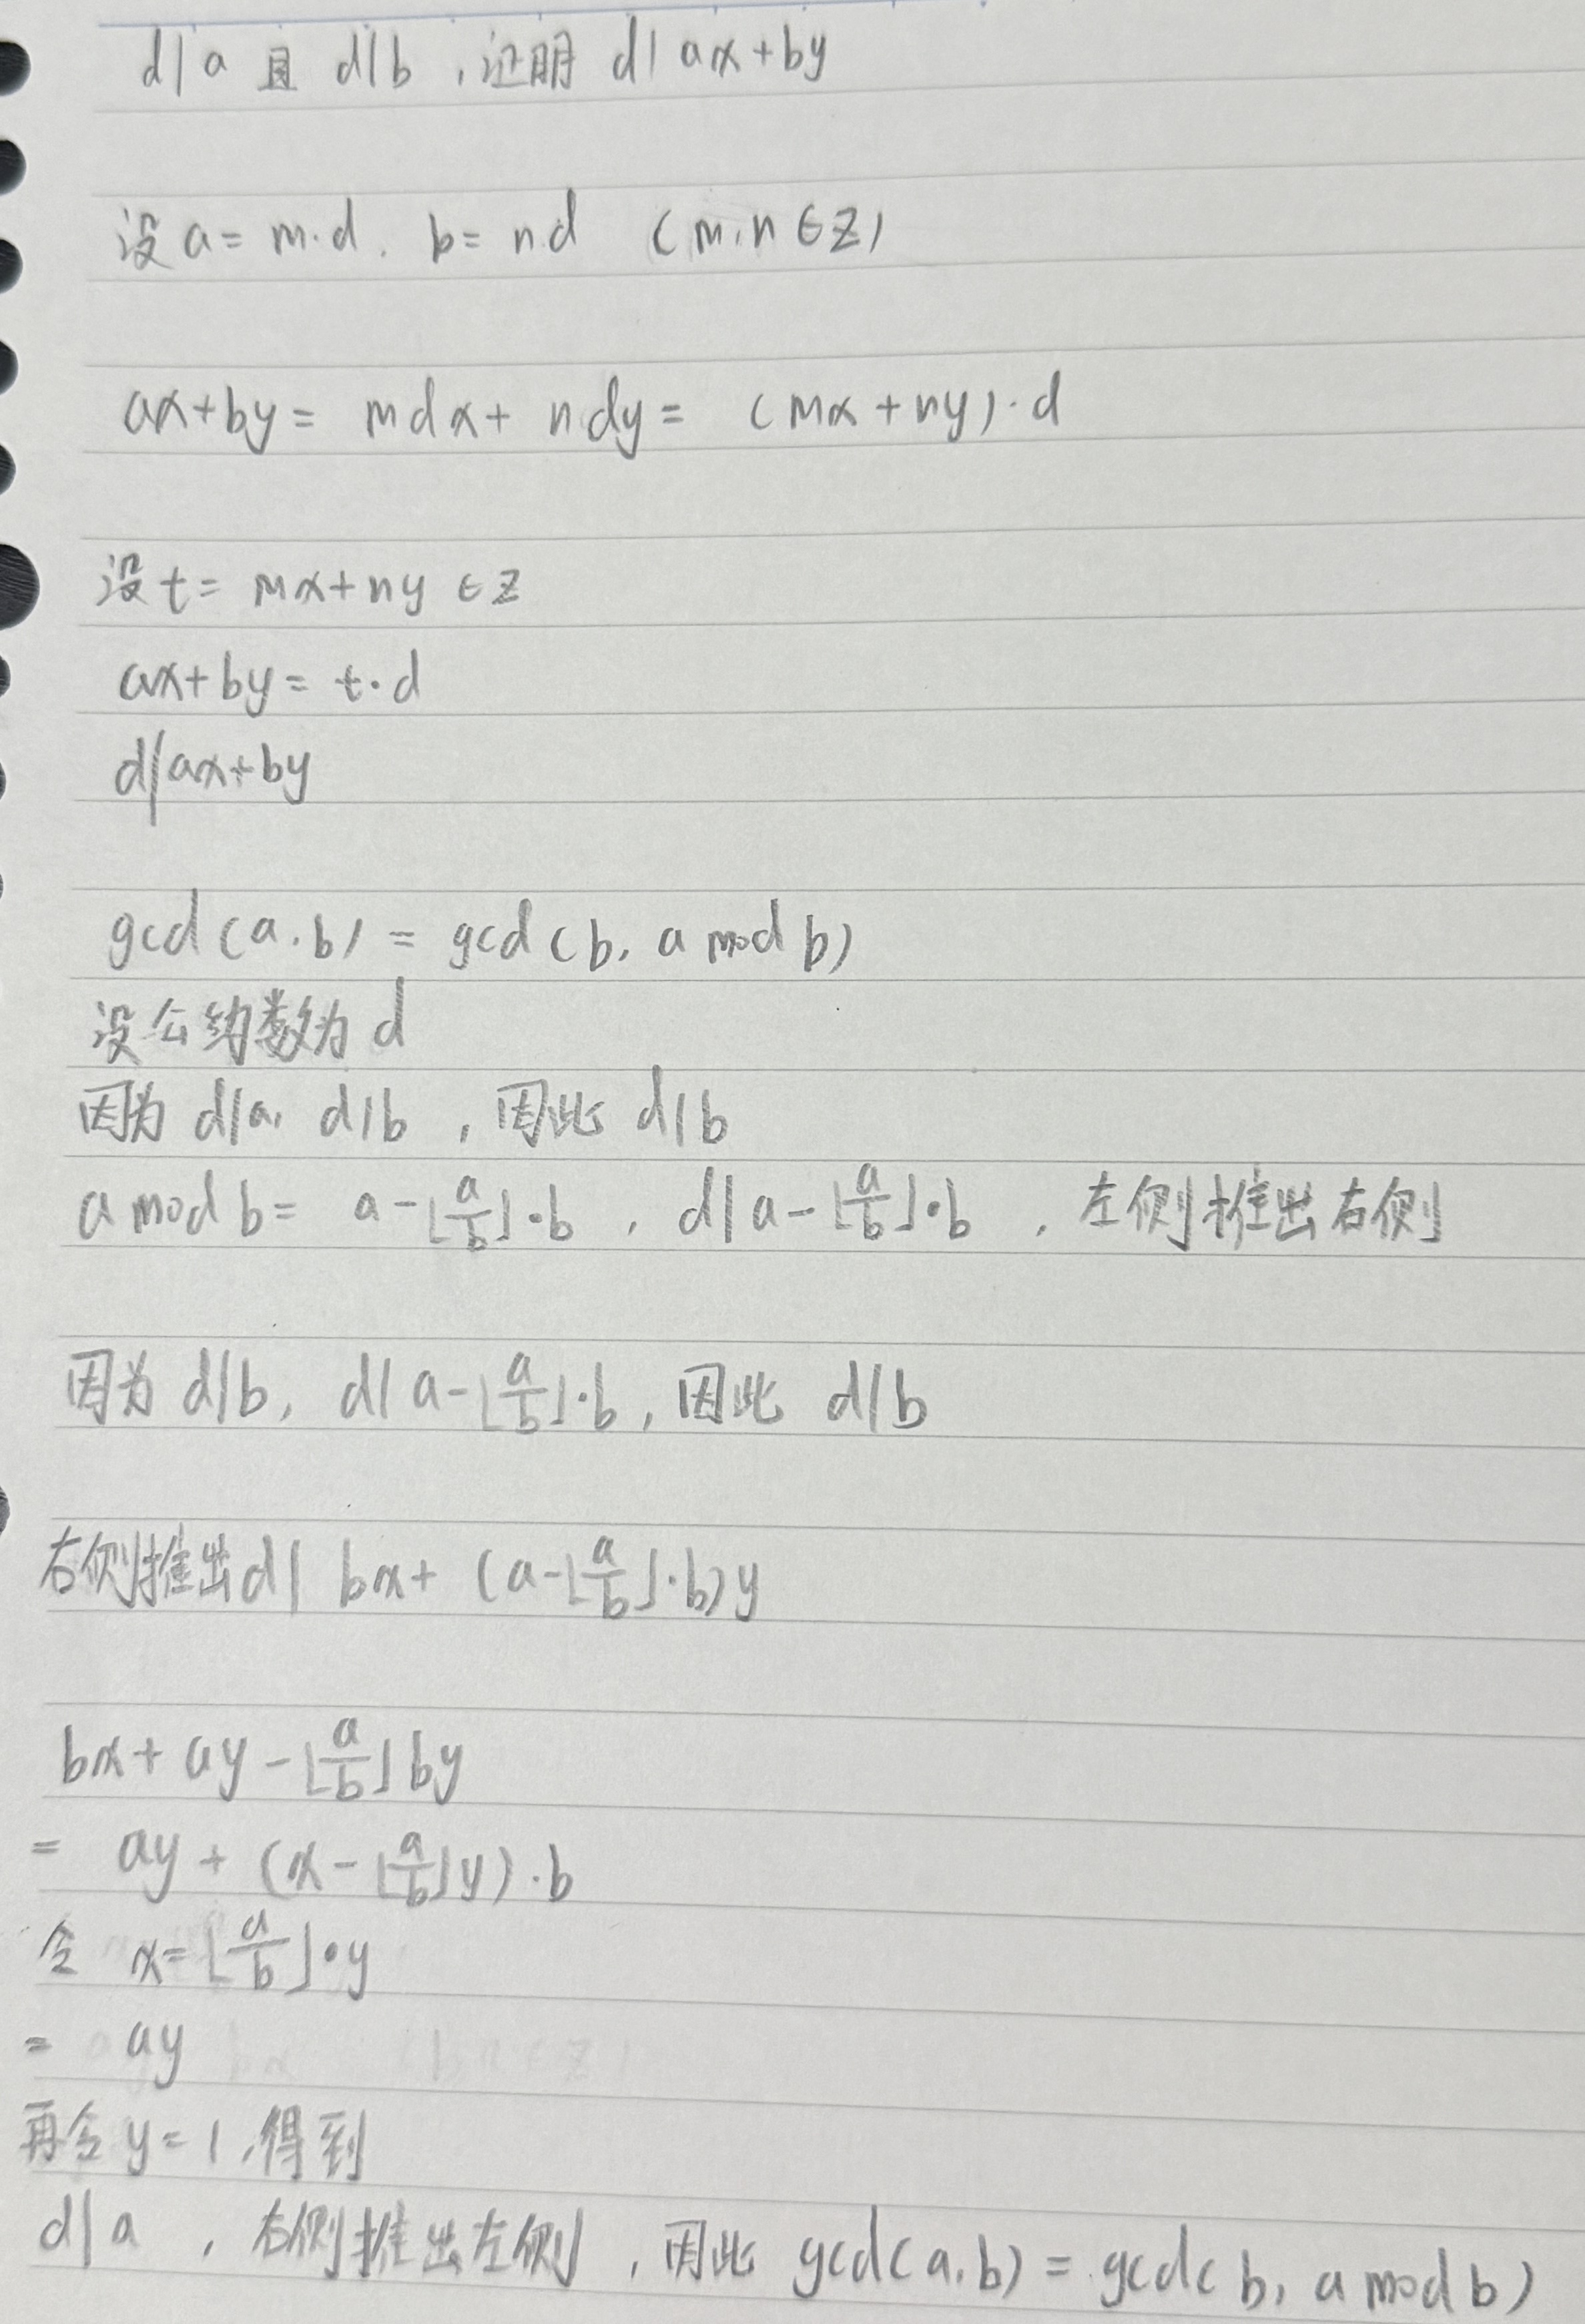 d|a 且 d|b ,证明 d| ax+by
设 a= m·d. b= nd (m,n∈Z)
ax+by= mdx+ ndy= (mx+ny)·d
设 t= mx+ny ∈Z
ax+by= t·d
d|ax+by
gcd(a,b) = gcd(b, a mod b)
设公约数为 d
因为 d|a, d|b ,因此 d|b
a mod b= a-⌊a/b⌋·b , d|a-⌊a/b⌋·b , 左侧推出右侧
因为 d|b, d|a-⌊a/b⌋·b, 因此 d|b
右侧推出d| bx+ (a-⌊a/b⌋·b)y
bx+ ay -⌊a/b⌋by
= ay + (x-⌊a/b⌋y)·b
令 x=⌊a/b⌋·y
= ay
再令 y=1 ,得到
d|a , 右侧推出左侧 ,因此 gcd(a,b) = gcd(b, a mod b)